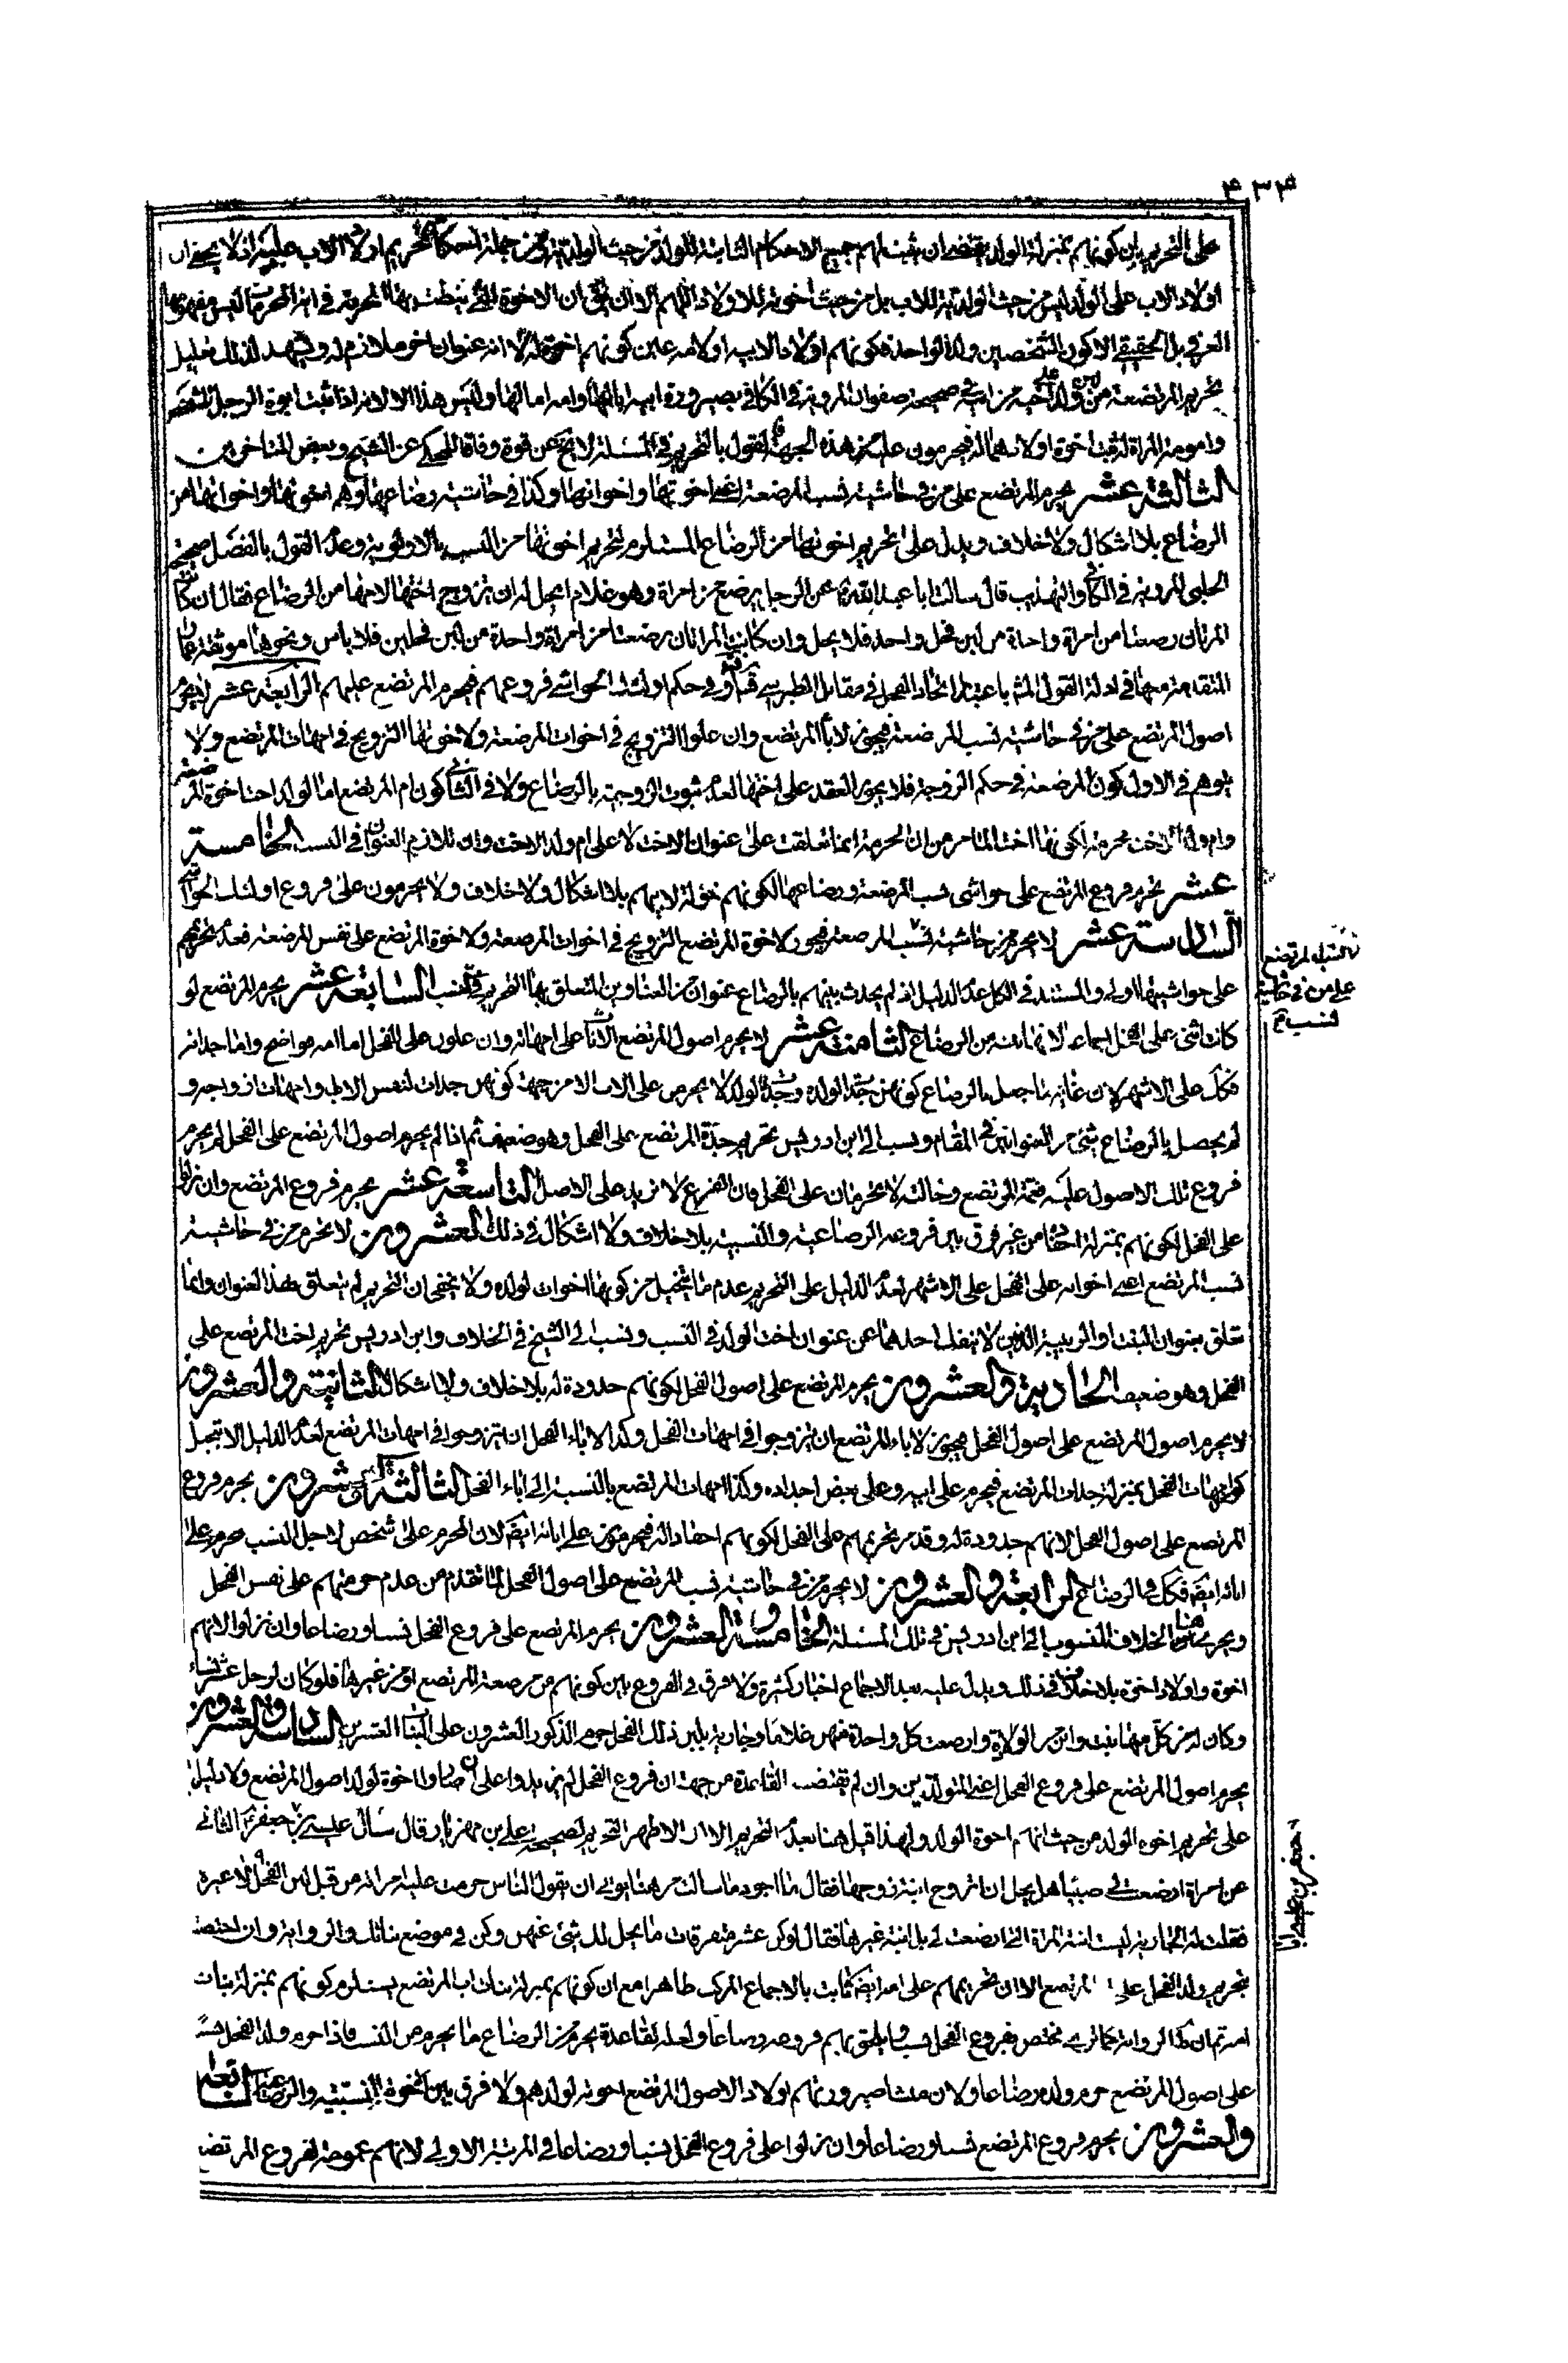 ٤٣٤
على التحريم بان كونهم بمنزلة الولد يقتضى ان يثبت لهم جميع الاحكام الثابتة للولد من حيث الولدية ومن جملة احكامه تحريم اولاد الاب عليه اذ لا يخفى ان
اولاد الاب على الولد ليس من حيث الولدية للاب بل من حيث اخوته للاولاد اللهم الا ان يق ان الاخوة التى نيطت بها الحرمة فى ليس مفهومها
العرفى بل الحقيقى الا كون الشخصين ولدا لواحد فكونهم اولادا لابيه او لامه عين كونهم اخوة له لا انه عنوان اخر ملازم له ويشهد لذلك تعليل
تحريم المرتضعة من لبن ولد على اخيه من ابيه فى صحيحة صفوان المروية فى الكافى بصيرورة ابيه اباها وامه امها وليس هذا الا لانه اذا ثبت ابوة الرجل لشخص
وامومة المراة له ثبت اخوة اولادهما له فيحرمون عليه من هذه الجهة فالقول بالتحريم فى المسئلة لا يخ عن قوة وفاقا للمحكى عن الشيخ وبعض المتاخرين
الثالثة عشر يحرم المرتضع على من فى حاشية نسب المرضعة اعنى اخوتها واخواتها وكذا فى حاشية رضاعها وهم اخوتها واخواتها من
الرضاع بلا اشكال ولا خلاف ويدل على تحريم اخوتها من الرضاع المستلزم لتحريم اخوتها من النسب بالاولوية وعدم القول بالفصل صحيحة
الحلبى المروية فى الكافى والتهذيب قال سالت ابا عبد الله ع عن الرجل يرضع من امراة وهو غلام ايحل له ان يتزوج اختها لامها من الرضاع فقال ان كانت
المرتان رضعتا من امراة واحدة من لبن فحل واحد فلا يحل وان كانت المراتان رضعتا من امراة واحدة من لبن فحلين فلا باس ونحوها موثقة عمار
المتقدمة منها فى ادلة القول المش باعتبار اتحاد الفحل فى مقابل الطبرسى وفى حكم اولئك الحواشى فروعهم فيحرم المرتضع عليهم الرابعة عشر لا يحرم
اصول المرتضع على من فى حاشية نسب المرضعة فيجوز لاباء المرتضع وان علوا التزويج فى اخوات المرضعة ولاخوتها التزويج فى امهات المرتضع ولا
يتوهم فى الاول كون المرضعة فى حكم الزوجة فلا يجوز العقد على اختها لعدم ثبوت الزوجية بالرضاع ولا فى الثانى كون ام المرتضع اما لولد اخت اخوة المرضعة
وام ولد الاخت محرمة لكونها اختا لما مر من ان الحرمة انما تعلقت على عنوان الاخت لا على ام ولد الاخت وان تلازم العنوان فى النسب الخامسة
عشر تحرم فروع المرتضع على حواشى نسب المرضعة ورضاعها لكونهم خؤلة لابيهم بلا اشكال ولا خلاف ولا يحرمون على فروع اولئك الحواشى
السادسة عشر لا يحرم من حاشية نسب المرضعة فيجوز لاخوة المرتضع التزويج فى اخوات المرضعة ولاخوة المرتضع على نفس المرضعة فعدم تحريمهم
على حواشيها اولى والمستند فى الكل عدم الدليل اذ لم يحدث بينهم بالرضاع عنوان من العناوين المتعلق بها التحريم فى النسب السابعة عشر يحرم المرتضع لو
كانت انثى على الفحل اجماعا لانها بنته من الرضاع الثامنة عشر لا يحرم اصول المرتضع الاناث اعنى امهاته وان علون على الفحل اما امه فواضح واما جداته
فكك على الاشهر لان غاية ما حصل بالرضاع كونهن جدات لولده وجدة الولد لا يحرمن على الاب الا من جهة كونهن جدات لنفس الاب او امهات ازواجه و
لم يحصل بالرضاع شئ من العنوانين فى المقام ونسب الى ابن ادريس تحريم جدة المرتضع على الفحل وهو ضعيف ثم اذا لم يحرم اصول المرتضع على الفحل لم يحرم
فروع تلك الاصول عليه فعمة المرتضع وخالته لا تحرمان على الفحل فان الفرع لا يزيد على الاصل التاسعة عشر يحرم فروع المرتضع وان نزلوا
على الفحل لكونهم بمنزلة احفاده من غير فرق بين فروعه الرضاعية والنسبية بلا خلاف ولا اشكال فى ذلك العشرون لا تحرم من فى حاشية
نسب المرتضع اعنى اخواته على الفحل على الاشهر لعدم الدليل على التحريم عدم ما يتخيل من كونها اخوات لولده ولا يخفى ان التحريم لم يتعلق بهذا العنوان وانما
تعلق بعنوان البنت او الربيبة اللذين لا ينفك احدهما عن عنوان اخت الولد فى النسب ونسب الى الشيخ فى الخلاف وابن ادريس تحريم اخت المرتضع على
الفحل وهو ضعيف الحادية والعشرون يحرم المرتضع على اصول الفحل لكونهم جدودة له بلا خلاف ولا اشكال الثانية والعشرون
لا يحرم اصول المرتضع على اصول الفحل فيجوز لاباء المرتضع ان يتزوجوا فى امهات الفحل وكذا لاباء الفحل ان يتزوجوا فى امهات المرتضع لعدم الدليل الا تخيل
كون امهات الفحل بمنزلة جدات المرتضع فيحرم على ابيه وعلى بعض اجداده وكذا امهات المرتضع بالنسبة الى اباء الفحل الثالثة والعشرون يحرم فروع
المرتضع على اصول الفحل لانهم جدودة له وقد مر تحريمهم على الفحل لكونهم احفادا له فيحرمون على ابائه ايضا لان المحرم على شخص لاجل النسب محرم على
ابائه ايضا فكك فى الرضاع الرابعة والعشرون لا يحرم من فى حاشية نسب المرتضع على اصول الفحل لما تقدم من عدم حرمتهم على نفس الفحل
ويجرى هنا الخلاف المنسوب الى ابن ادريس فى تلك المسئلة الخامسة والعشرون يحرم المرتضع على فروع الفحل نسبا ورضاعا وان نزلوا لانهم
اخوة واولاد اخوة بلا خلاف فى ذلك ويدل عليه بعد الاجماع اخبار كثيرة ولا فرق فى الفروع بين كونهم من مرضعة المرتضع او من غيرها فلو كان لرجل عشر نساء
وكان له من كل منها بنت وابن من الولادة وارضعت كل واحدة منهن غلاما وجارية بلبن ذلك الفحل حرم الذكور العشرون على البنات العشرين السادسة والعشرون
يحرم اصول المرتضع على فروع الفحل اعنى المتولدين وان لم يقتضه القاعدة من جهة ان فروع الفحل لم يزيدوا على ان صاروا اخوة لولد اصول المرتضع ولا دليل
على تحريم اخوة الولد من حيث انهم اخوة الولد ولهذا قيل هنا بعدم التحريم الا ان الاظهر التحريم لصحيحة على بن مهزيار قال سال عيسى بن جعفر ابا جعفر الثانى
عن امراة ارضعت لى صبيا هل يحل ان اتزوج ابنة زوجها فقال ما اجود ما سالت من ههنا يؤتى ان يقول الناس حرمت عليه امراته من قبل لبن الفحل لا غيره
فقلت له الجارية ليست ابنة المراة التى ارضعت لى بل ابنة غيرها فقال لو كن عشرة متفرقات ما يحل لك شئ منهن وكن فى موضع بناتك والرواية وان اختصت
بتحريم ولد الفحل على اب المرتضع الا ان تحريمهم على امه ايضا ثابت بالاجماع المركب ظاهرا مع ان كونهم بمنزلة بنات اب المرتضع يستلزم كونهم بمنزلة بنات
امه ثم ان الرواية كما ترى مختص بفروع الفحل نسبا ويلحق بهم فروعه رضاعا ولعله لقاعدة يحرم من الرضاع ما يحرم من النسب فاذا حرم ولد الفحل نسبا
على اصول المرتضع حرم ولده رضاعا ولان منشا صيرورتهم اولادا لاصول المرتضع اخوته لولدهم ولا فرق بين الاخوة النسبية والرضاعية السابعة
والعشرون يحرم فروع المرتضع نسبا ورضاعا وان نزلوا على فروع الفحل نسبا ورضاعا فى المرتبة الاولى لانهم عمومة لفروع المرتضع
على من فى حاشية
نسب